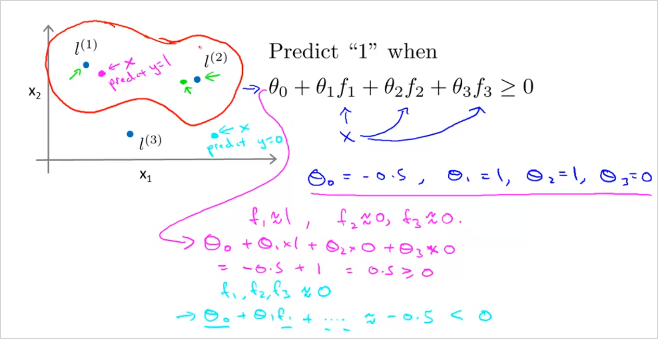 l(1)
← x
predict y=1
l(2)
x₂
l(3)
← x
predict y=0
x₁
Predict “1” when
θ₀ + θ₁f₁ + θ₂f₂ + θ₃f₃ ≥ 0
x
θ₀ = -0.5 , θ₁ = 1, θ₂ = 1, θ₃ = 0
f₁ ≈ 1 , f₂ ≈ 0, f₃ ≈ 0.
→ θ₀ + θ₁×1 + θ₂×0 + θ₃×0
= -0.5 + 1 = 0.5 ≥ 0
f₁, f₂, f₃ ≈ 0
→ θ₀ + θ₁f₁ + .... ≈ -0.5 < 0